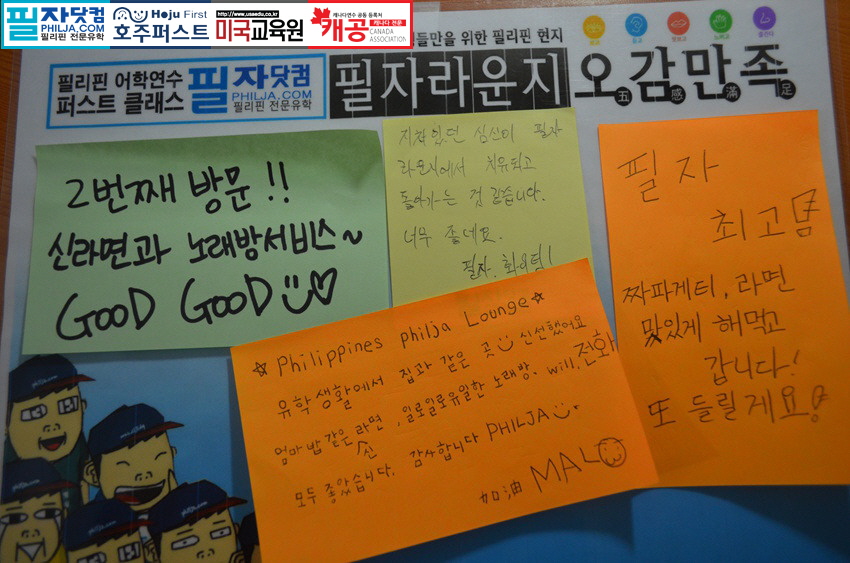 필자닷컴
PHILJA.COM
필리핀 전문유학
Hoju First
호주퍼스트
http://www.usaedu.co.kr
미국교육원
캐나다연수 공동 등록처
캐공 캐나다 전문
CANADA
ASSOCIATION
들만을 위한 필리핀 현지
필리핀 어학연수
퍼스트 클래스
필자닷컴
PHILJA.COM
필리핀 전문유학
필자라운지
오감만족
五感滿足
2번째 방문!!
신라면과 노래방서비스~
GOOD GOOD
지쳐있던 심신이 필자
라운지에서 치유되고
돌아가는 것 같습니다.
너무 좋네요.
필자. 화이팅!
필자
최고
짜파게티, 라면
맛있게 해먹고
갑니다!
또 들릴게요
☆Philippines philja Lounge☆
유학생활에서 집과 같은 곳 신선했어요
엄마밥같은 신라면, 일로일로유일한 노래방, will.전화
모두 좋았습니다. 감사합니다 PHILJA
加油 MALO
philja.com
philja.com
philja.com
philja.com
philja.com